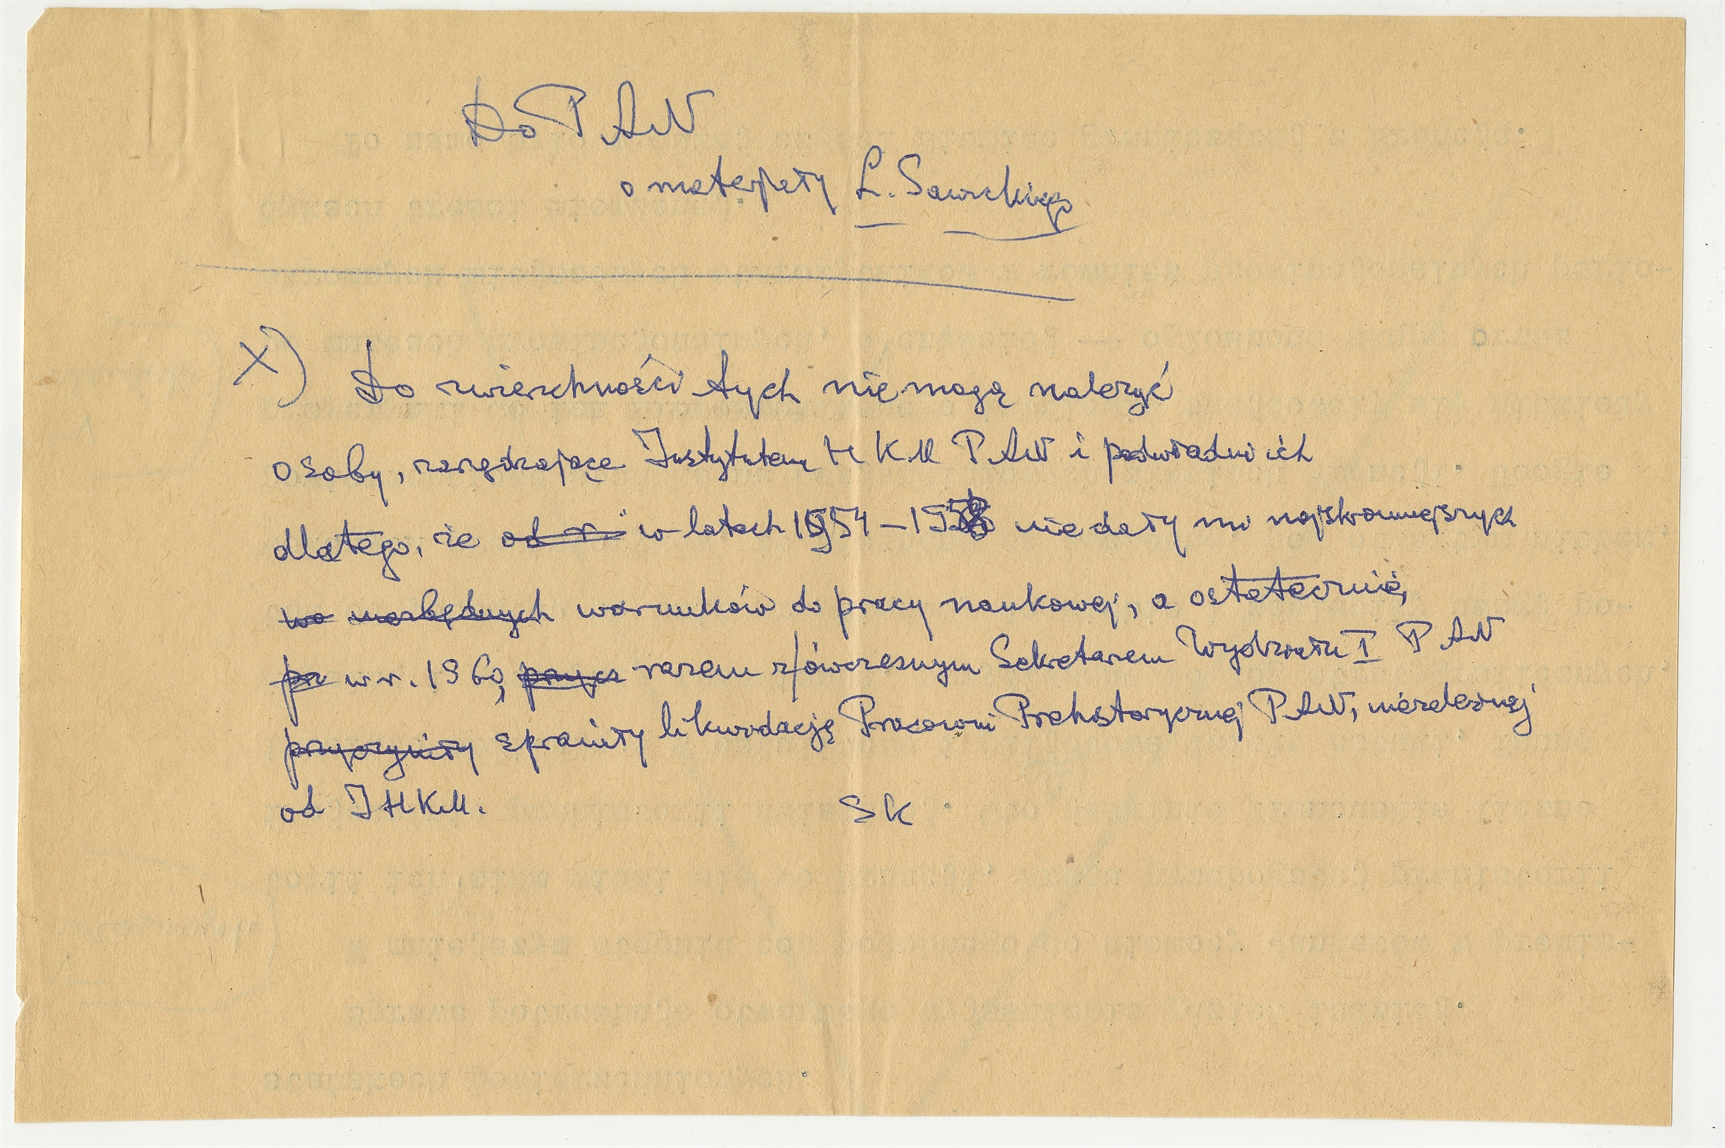 Do PAN
o materjały L. Sawickiego
X) Do zwierzchności tych nie mogą należyć
osoby, zarządzające Instytutem H K M PAN i podwładni ich
dlatego, że od r. w latach 1954 – 1958 nie dały mi najskromniejszych
niezbędnych warunków do pracy naukowej, a ostatecznie,
pr w r. 1960, przycz razem z ówczesnym Sekretarzem Wydziału I PAN
przyczyniły sprawiły likwidację Pracowni Prehistorycznej PAN, niezależnej
od IHKM. SK